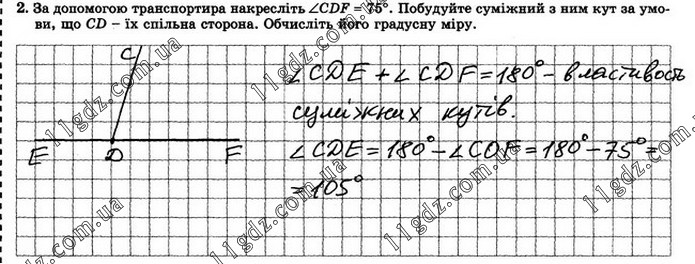 2. За допомогою транспортира накресліть ∠CDF = 75°. Побудуйте суміжний з ним кут за умо-
ви, що CD – їх спільна сторона. Обчисліть його градусну міру.
C
E D F
∠CDE + ∠CDF = 180° – властивость
суміжних кутів.
∠CDE = 180° – ∠CDF = 180° – 75° =
= 105°
11gdz.com.ua
11gdz.com.ua
11gdz.com.ua
11gdz.com.ua
11gdz.com.ua
11gdz.com.ua